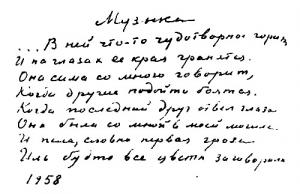 Музыка
...В ней что-то чудотворное горит,
И на глазах ее края гранятся.
Она сама со мною говорит,
Когда другие подойти боятся.
Когда последний друг отвел глаза
Она была со мной в моей могиле
И пела, словно первая гроза
Иль будто все цветы заговорили
1958